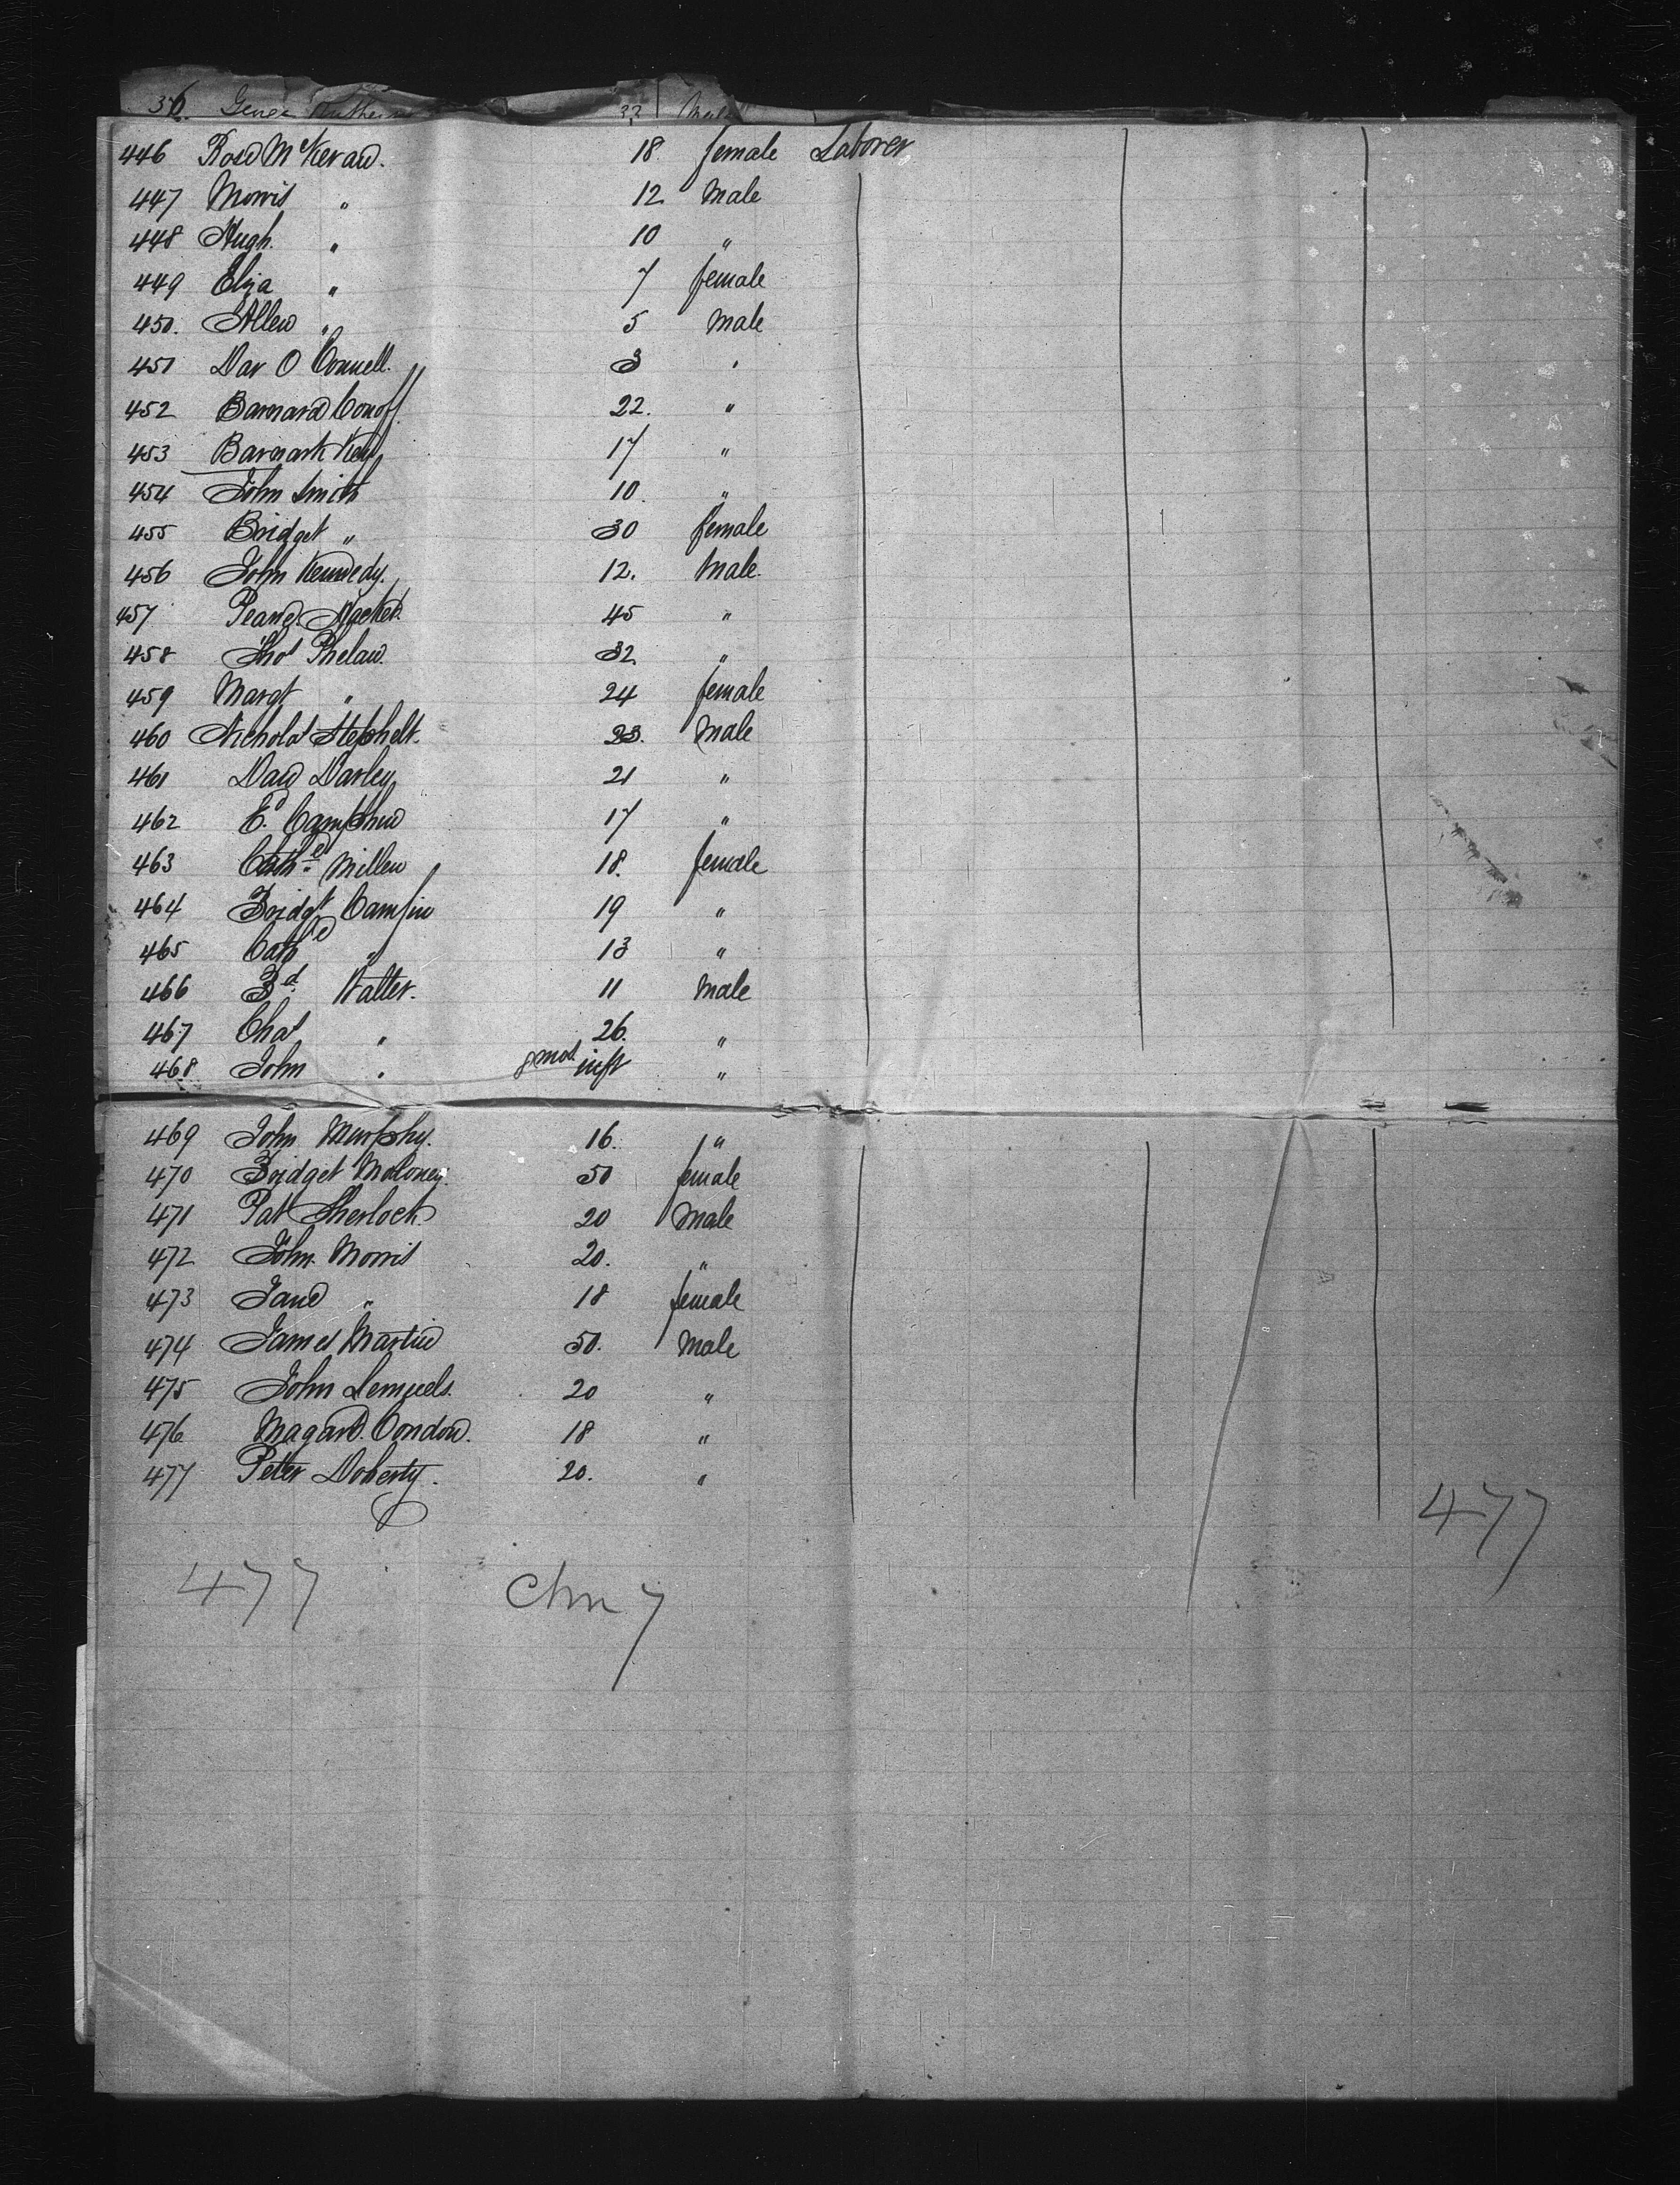 446 Rose McKevan. 18. female Laborer
447 Morris " 12 Male
448 Hugh. " 10 "
449 Eliza " 7 female
450. Allen " 5 Male
451 Dav O Connell. 3 "
452 Barnard Conoff. 22. "
453 Barnark Key 17 "
454 John Smith 10. "
455 Bridget " 30 female
456 John Kennedy. 12. Male.
457 45 "
458 Thos Phelan. 32. "
459 Margt " 24 female
460 Nicholas Stephelt. 23. Male
461 Dav Darley 21 "
462 Ed. Camphin 17 "
463 Cathe Millen 18. female
464 Bridgt Camfin 19 "
465 Cathe " 13 "
466 Bd. Walter. 11 Male
467 Chas " 26. "
468 John " 8 mos. inft "
469 John Murphy. 16. "
470 Bridget Moloney. 50 female
471 Pat Sherlock 20 Male
472 John Morris 20. "
473 Jane " 18 female
474 James Martin 50. Male
475 John Lemuels. 20 "
476 Magard. Condon. 18 "
477 Peter Doherty. 20. "
477
477 Chn 7